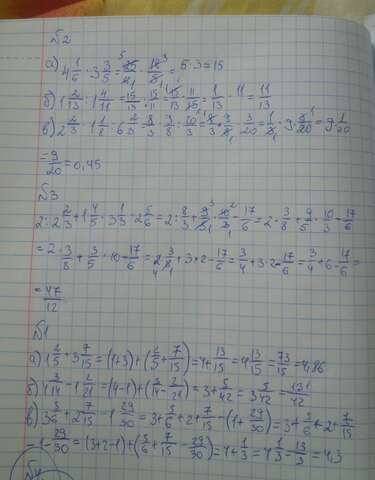 №2
а) 4 1/6 · 3 3/5 = 25/6 · 18/5 = 5 · 3 = 15
б) 1 2/13 · 1 4/11 = 15/13 · 15/11 = 15/13 · 11/15 = 1/13 · 11 = 11/13
в) 2 2/3 · 1 1/8 · 6 2/3 = 8/3 · 3/8 · 10/3
= 9/20 = 0,45
№3
2 : 2 2/3 + 1 4/5 · 3 1/3 - 2 5/6 = 2 : 8/3 + 9/5 · 10/3 - 17/6 = 2 · 3/8 + 9/5 · 10/3 - 17/6
= 2 · 3/8 + 3/5 · 10 - 17/6 = 2 · 3/8 + 3 · 2 - 17/6 = 3/4 + 3 · 2 - 17/6 = 3/4 + 6 - 17/6 =
= 47/12
№1
а) 1 2/5 + 3 7/15 = (1+3) + (2/5 + 7/15) = 4 + 13/15 = 4 13/15 = 73/15 = 4,86
б) 4 3/14 - 1 2/21 = (4-1) + (3/14 - 2/21) = 3 + 5/42 = 3 5/42 = 131/42
в) 3 5/6 + 2 7/15 - 1 29/30 = 3 + 5/6 + 2 + 7/15 - (1 + 29/30) = 3 + 5/6 + 2 + 7/15
- 1 - 29/30 = (3+2-1) + (5/6 + 7/15 - 29/30) = 4 + 1/3 = 4 1/3 = 13/3 = 4,3
№4